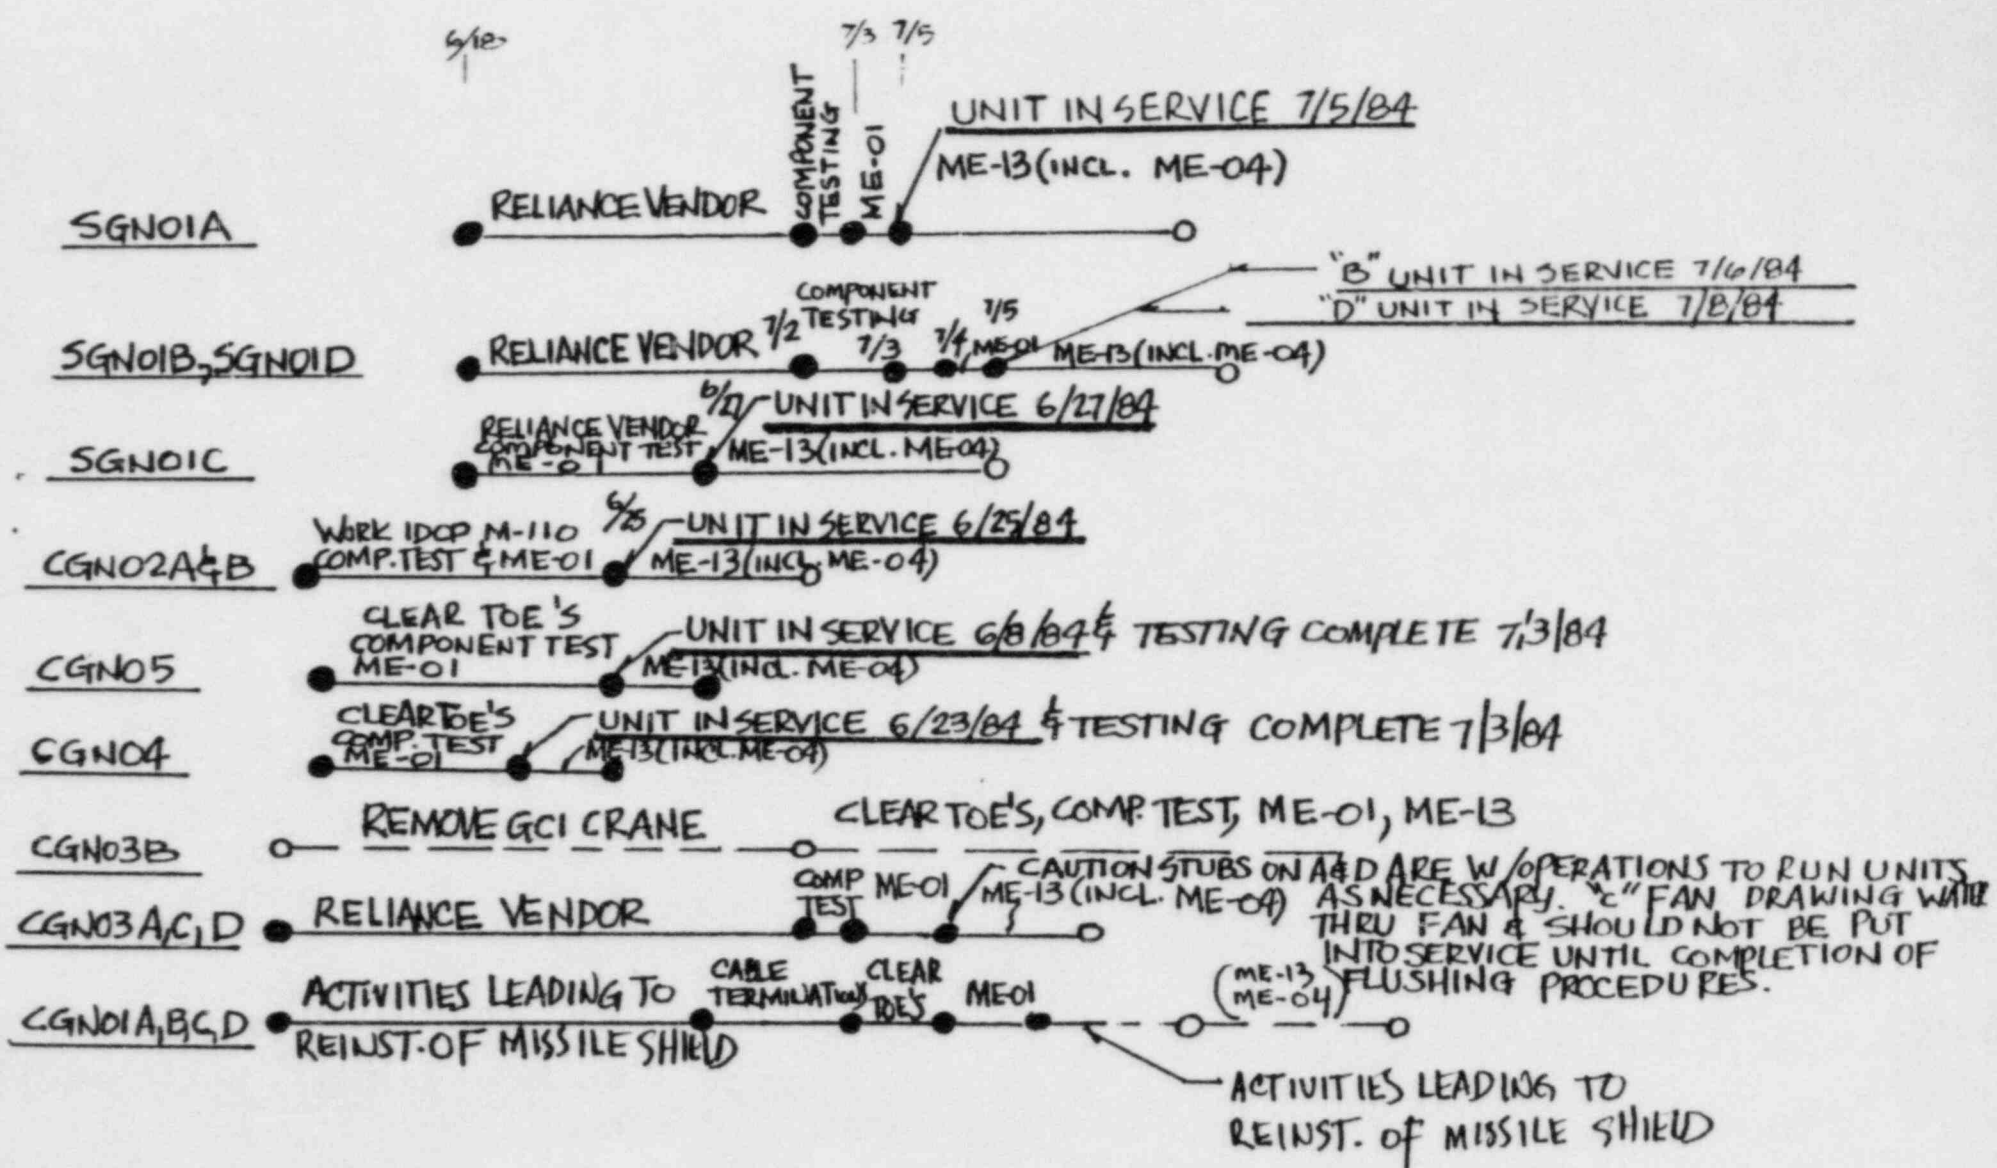 6/18
7/3 7/5
COMPONENT
TESTING
ME-01
UNIT IN SERVICE 7/5/84
ME-13 (INCL. ME-04)
SGN01A
RELIANCE VENDOR
"B" UNIT IN SERVICE 7/6/84
"D" UNIT IN SERVICE 7/8/84
SGN01B, SGN01D
RELIANCE VENDOR
7/2
COMPONENT
TESTING
7/3
7/4
7/5
ME-01
ME-13 (INCL. ME-04)
SGN01C
RELIANCE VENDOR
COMPONENT TEST
ME-01
6/27
UNIT IN SERVICE 6/27/84
ME-13 (INCL. ME-04)
CGN02A&B
WORK IDCP M-110
COMP. TEST & ME-01
6/25
UNIT IN SERVICE 6/25/84
ME-13 (INCL. ME-04)
CGN05
CLEAR TOE'S
COMPONENT TEST
ME-01
UNIT IN SERVICE 6/8/84 & TESTING COMPLETE 7/3/84
ME-13 (INCL. ME-04)
CGN04
CLEAR TOE'S
COMP. TEST
ME-01
UNIT IN SERVICE 6/23/84 & TESTING COMPLETE 7/3/84
ME-13 (INCL. ME-04)
CGN03B
REMOVE GCI CRANE
CLEAR TOE'S, COMP. TEST, ME-01, ME-13
CGN03A,C,D
RELIANCE VENDOR
COMP
TEST
ME-01
ME-13 (INCL. ME-04)
CAUTION STUBS ON A&D ARE W/OPERATIONS TO RUN UNITS
AS NECESSARY. "C" FAN DRAWING WATER
THRU FAN & SHOULD NOT BE PUT
INTO SERVICE UNTIL COMPLETION OF
FLUSHING PROCEDURES.
CGN01A,B,C,D
ACTIVITIES LEADING TO
REINST. OF MISSILE SHIELD
CABLE
TERMINATIONS
CLEAR
TOE'S
ME-01
(ME-13
ME-04)
ACTIVITIES LEADING TO
REINST. OF MISSILE SHIELD